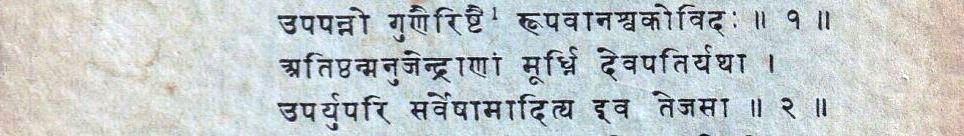 उपपन्नो गुणैरिष्टै¹ रूपवानश्वकोविदः ॥ १ ॥
अतिष्ठन्मनुजेन्द्राणां मूर्ध्नि देवपतिर्यथा ।
उपर्युपरि सर्वेषामादित्य इव तेजसा ॥ २ ॥